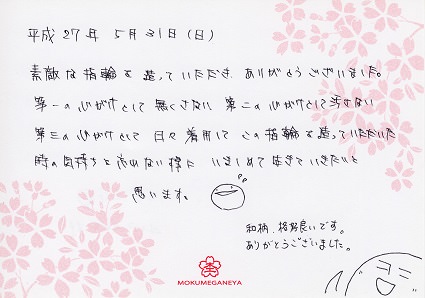 平成27年 5月31日(日)
素敵な指輪を造っていただき ありがとうございました。
第一の心がけとして 無くさない 第二の心がけとして汚さない
第三の心がけとして 日々着用して この指輪を造っていただいた
時の気持ちを忘れない様に いましめて生きていきたいと
思います。
和柄、格好良いです。
ありがとうございました。
MOKUMEGANEYA